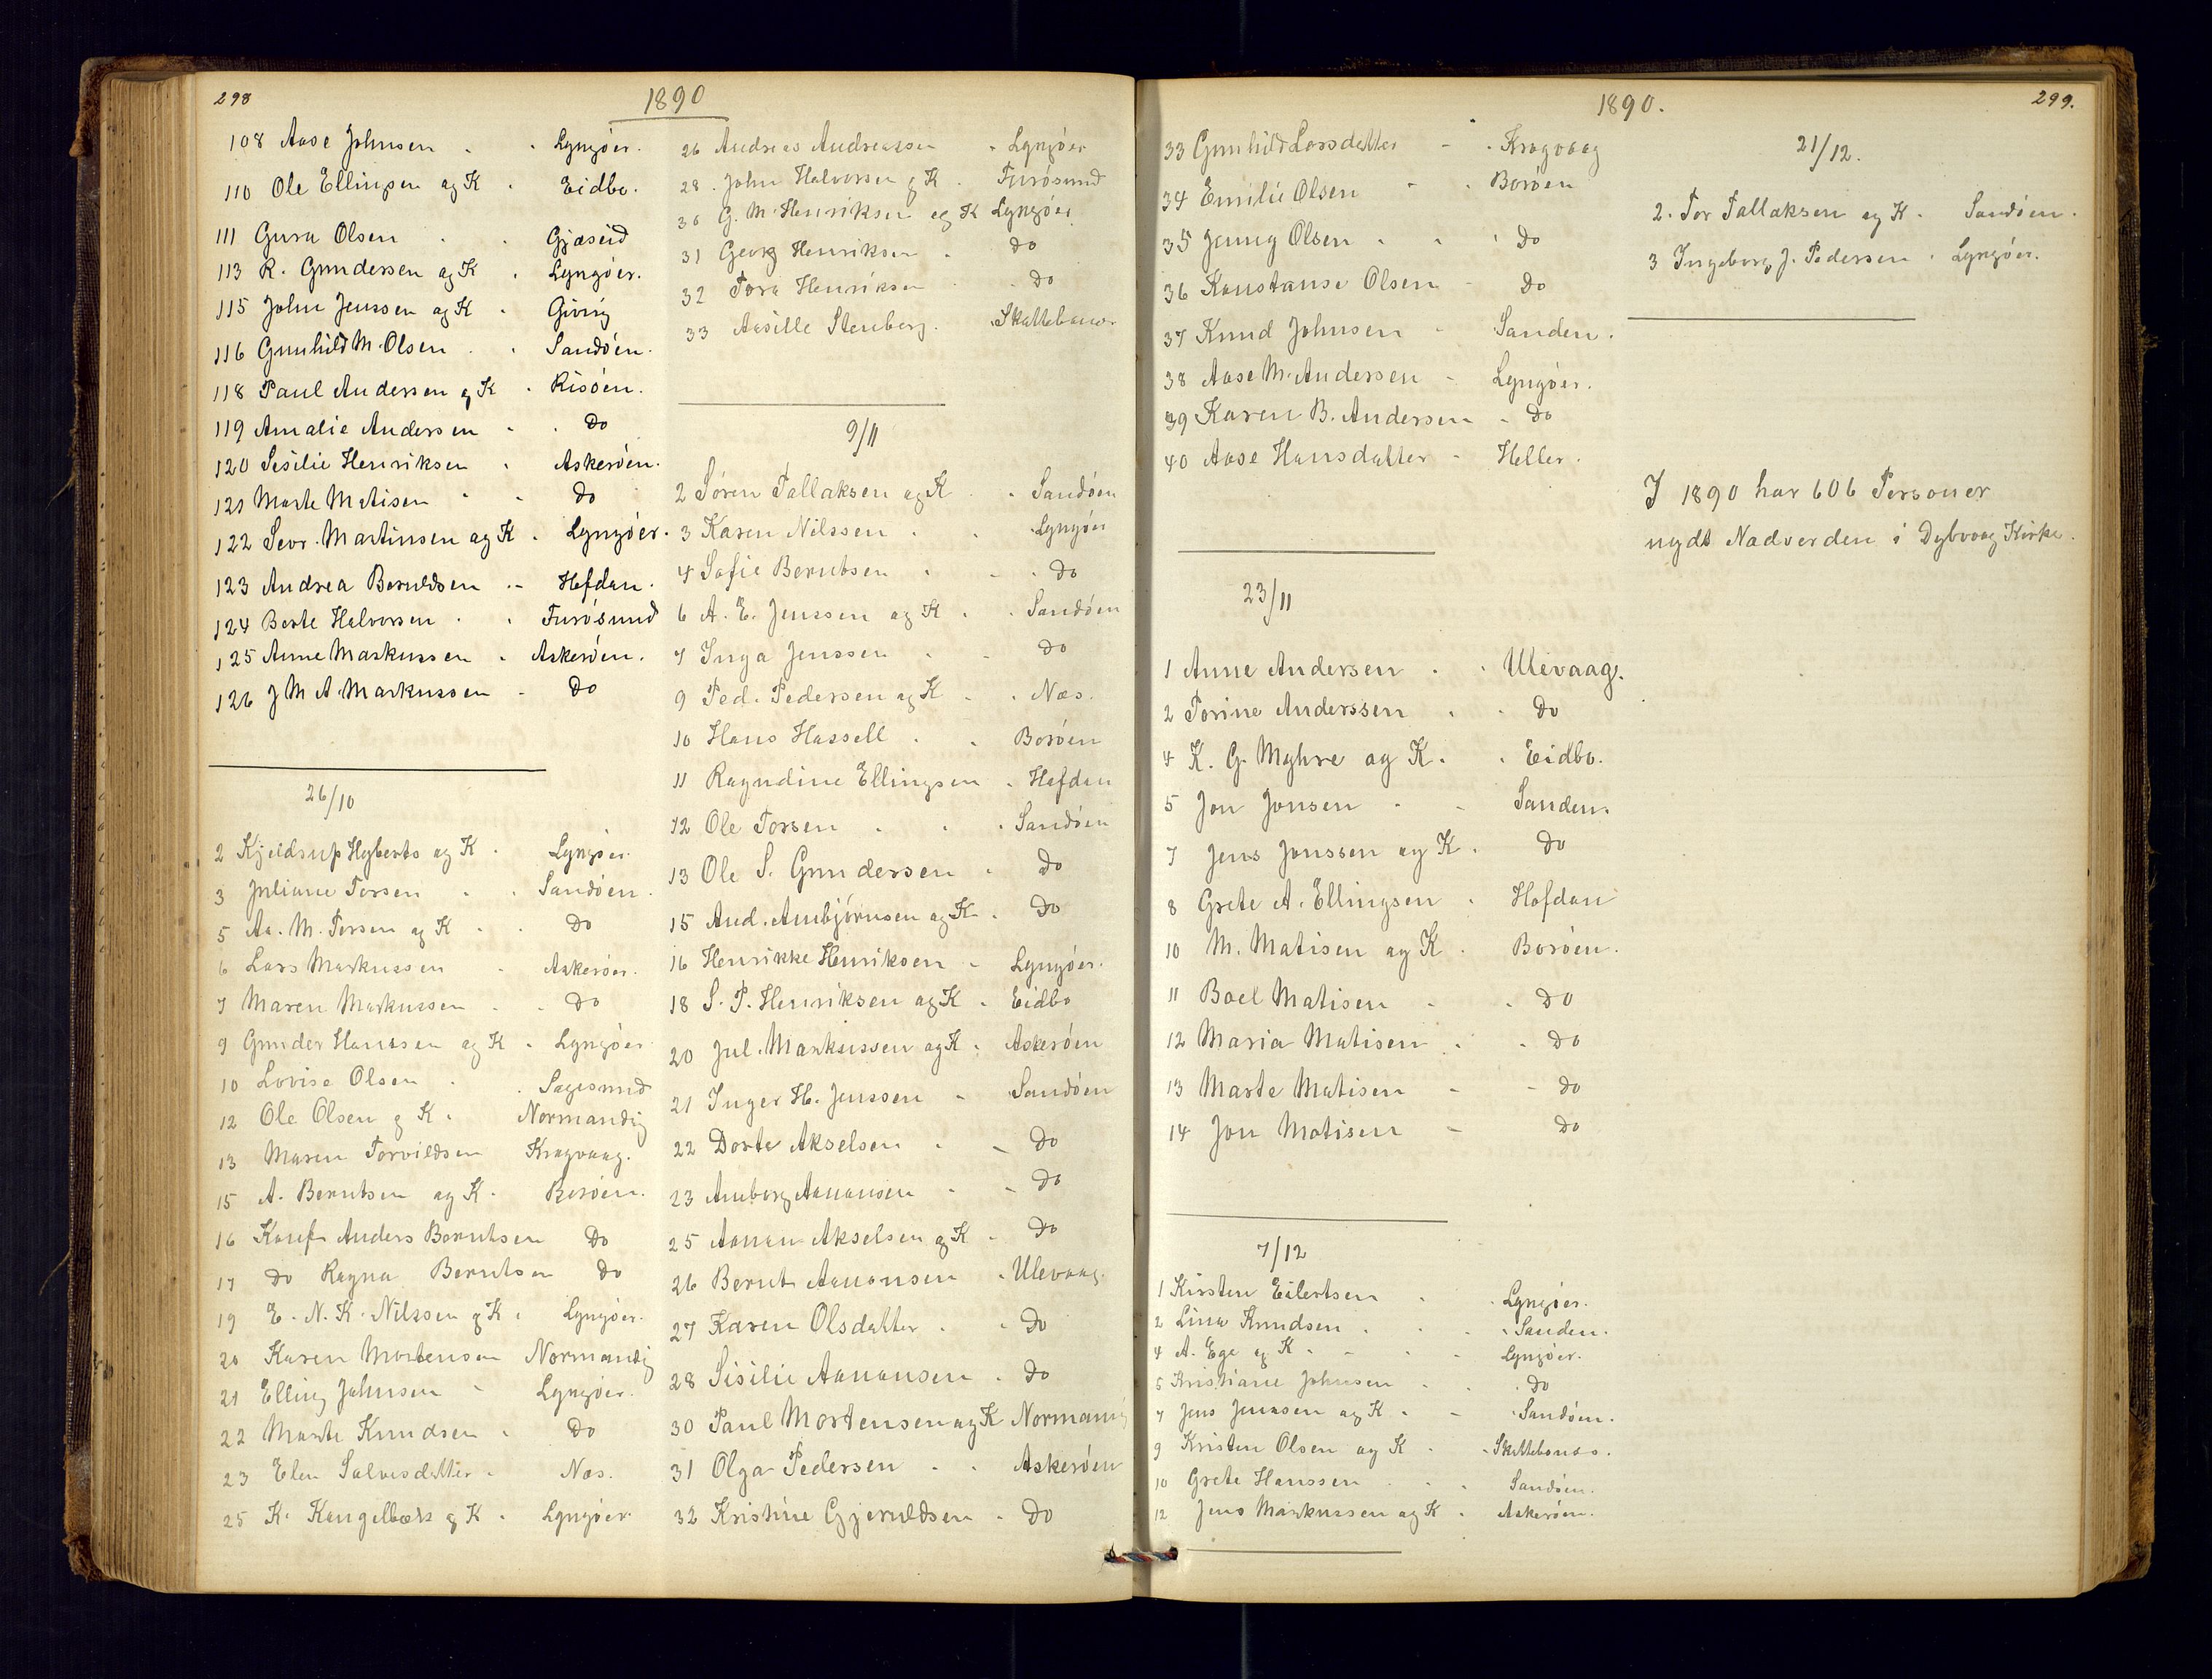 298
1890
108 Aase Johnsen - - Lyngöer.
110 Ole Ellingsen og K - Eidbo.
111 Gura Olsen - - Gjæseid
113 R. Gundersen og K - Lyngöer.
115 John Jenssen og K - Giving
116 Gunhild M. Olsen - - Sandöen.
118 Paul Andersen og K - Risöen.
119 Amalie Andersen - - Do
120 Sisilie Henriksen - Askeröen.
121 Marte Matisen - - Do
122 Sevr. Martinsen og K - Lyngöer.
123 Andrea Beruldsen - - Hefdan.
124 Berte Halvorsen - - Furösund
125 Anne Markussen - Askeröen.
126 J M A Markussen - Do
26/10
2 Kjeldsup Hyberts og K - Lyngöer.
3 Juliane Torsen - - Sandöen.
5 Aa. M. Torsen og K - - Do
6 Lars Markussen - Askeröer.
7 Maren Markussen - - Do
9 Gunder Hanssen og K - Lyngöer
10 Lovise Olsen - - Sagesund
12 Ole Olsen og K - Normandig
13 Maren Torvildsen Kragvaag.
15 A. Berntsen og K - Boröen.
16 Konf. Anders Berntsen Do
17 Do Ragna Berntsen Do
19 E. N. K. Nilssen og K - Lyngöer.
20 Karen Mortensen Normandig
21 Elling Johnsen - Lyngöer.
22 Marte Knudsen - Do
23 Elen Salvesdatter - Næs.
25 K. Kangelbæk og K - Lyngöer
26 Andreas Andreassen - Lyngöer
28 John Halvorsen og K - Furösund
30 G. M. Henriksen og K Lyngöer
31 Georg Henriksen - Do
32 Tora Henriksen - Do
33 Aasille Stenberg. Skattebonæs
9/11
2 Sören Tallaksen og K - - Sandöen
3 Karen Nilssen - - Lyngöer
4 Sofie Berntsen - - Do
6 A. E. Jenssen og K - - Sandöen
7 Inga Jenssen - - Do
9 Ped. Pedersen og K - - Næs.
10 Hans Hassell - - Boröen
11 Ragndine Ellingsen - Hefdan
12 Ole Torsen - - - Sandöen
13 Ole S. Gundersen - Do
15 And. Aubjörnsen og K - Do
16 Henrikke Henriksen - Lyngöer.
18 S. P. Henriksen og K - Eidbo
20 Jul. Markussen og K - Askeröen
21 Inger H. Jenssen - Sandöen
22 Dorte Akselsen - - Do
23 Anborg Aanonsen - - Do
25 Aanon Akselsen og K - Do
26 Bernt Aanonsen - Ulevaag.
27 Karen Olsdatter - - Do
28 Sisilie Aanonsen - Do
30 Paul Mortensen og K Normandig
31 Olga Pedersen - - Askeröen
32 Kristine Gjeruldsen - Do
1890.
299.
33 Gunhild Larsdatter - - Kragvaag
34 Emilie Olsen - - Boröen
35 Jenny Olsen - - - Do
36 Konstanse Olsen - Do
37 Knud Johnsen - Sanden.
38 Aase M. Andersen - Lyngöer.
39 Karen B. Andersen - Do
40 Aase Hansdatter - Heller.
23/11
1 Anne Andersen - - Ulevaag.
2 Torine Anderssen - - Do
4 K. G. Myhre og K. - Eidbo.
5 Jon Jonsen - - Sanden.
7 Jens Jonssen og K. Do
8 Grete A. Ellingsen - Hofdan
10 M. Matisen og K - Boröen.
11 Boel Matisen - - Do
12 Maria Matisen - - Do
13 Marte Matisen - - Do
14 Jon Matisen - Do
7/12
1 Kirsten Eilertsen - - Lyngöer.
2 Lina Knudsen - - - Sanden.
4 A. Ege og K - - - - Lyngöer.
5 Kristiane Johnsen - - - Do
7 Jens Jenssen og K - - Sandöen.
9 Kristen Olsen og K - Skattebonæs.
10 Grete Hanssen - - Sandöen.
12 Jens Markussen og K - Askeröen.
21/12.
2. Tor Tallaksen og K. Sandöen.
3 Ingeborg J. Pedersen - Lyngöer.
I 1890 har 606 Personer
nydt Nadverden i Dybvaag Kirke.